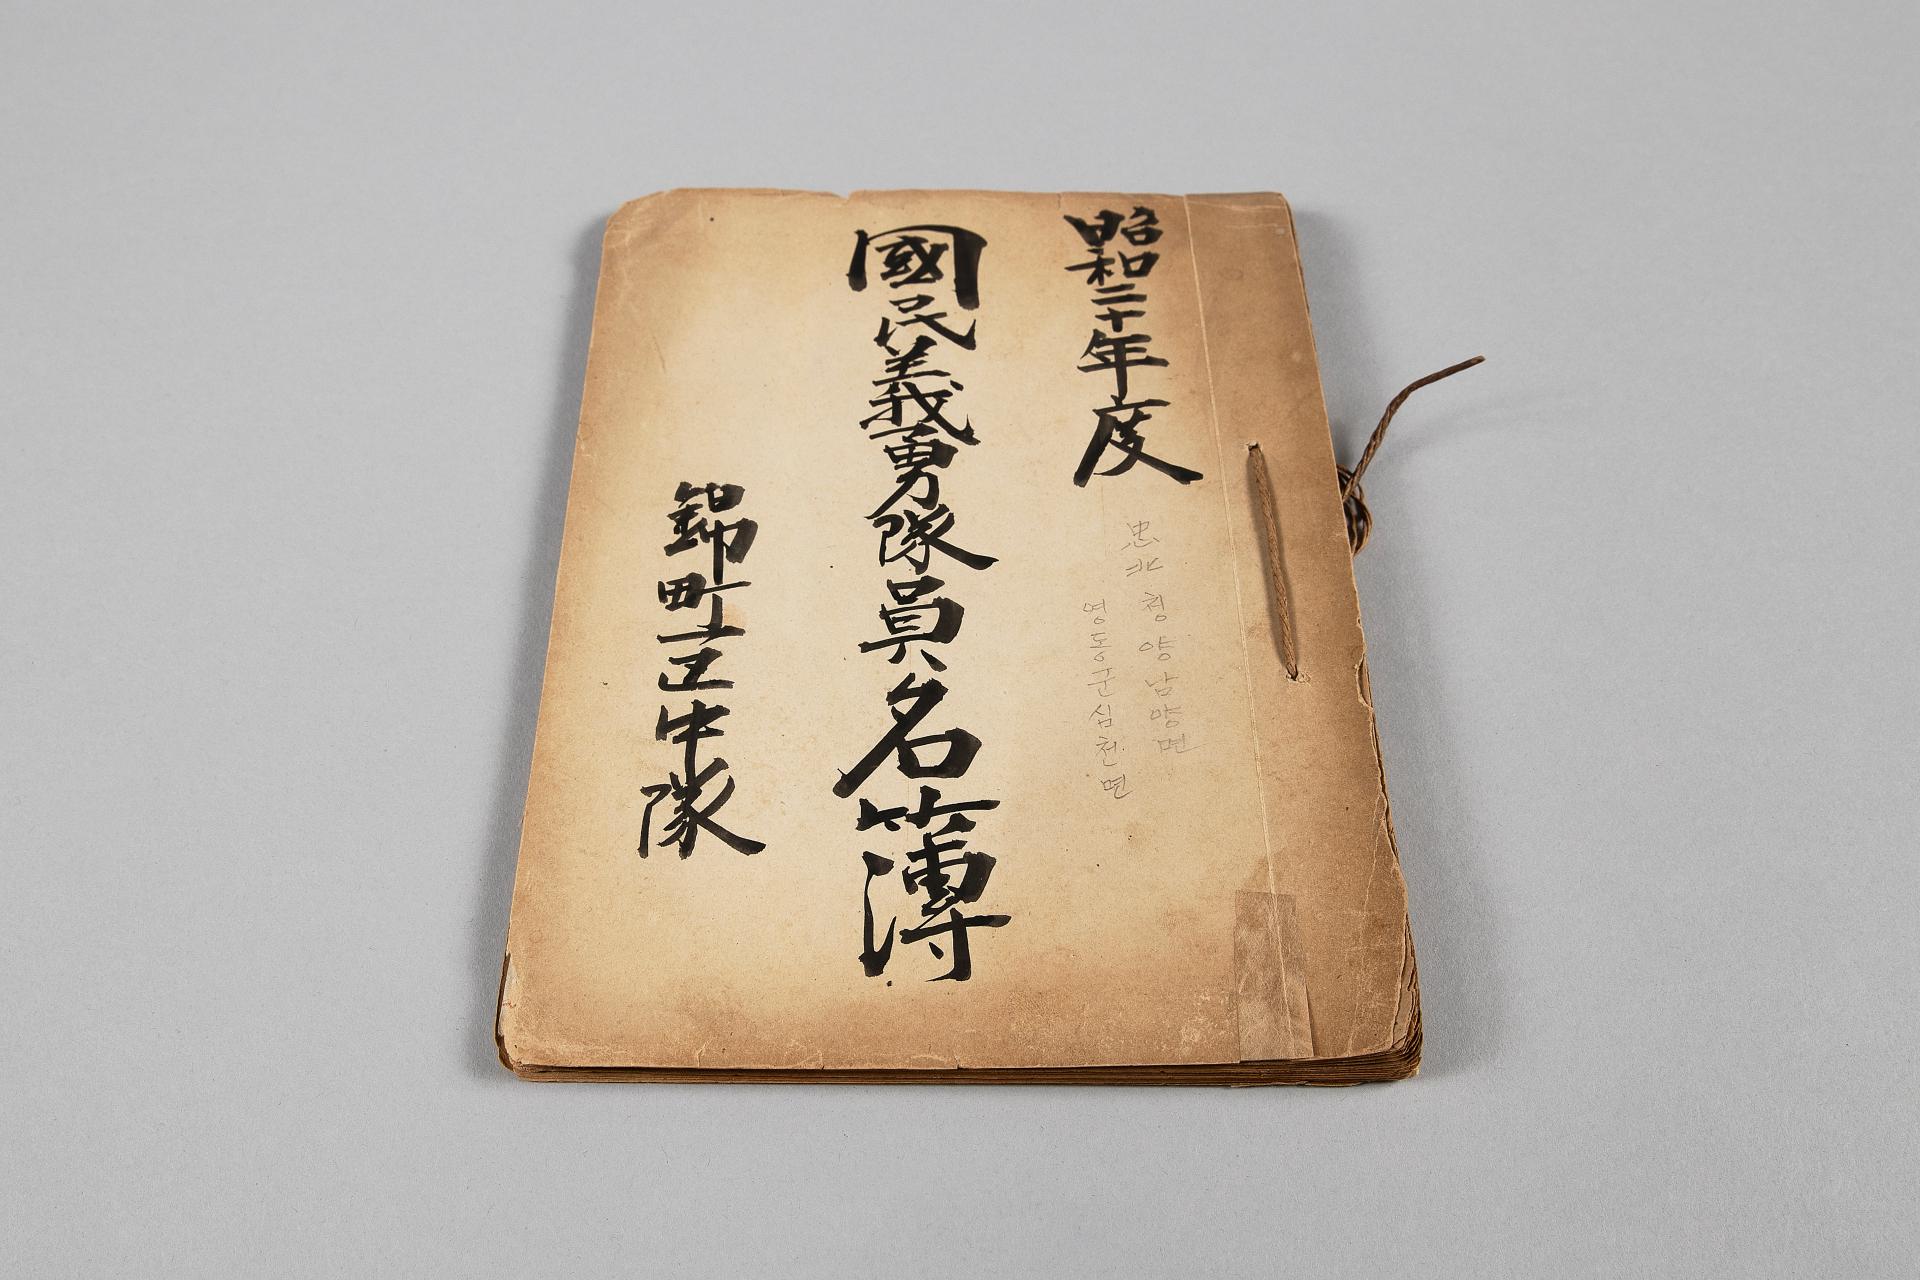 昭和二十年度
忠北 청양남양면
영동군심천면
國民義勇隊員名簿
錦町五中隊